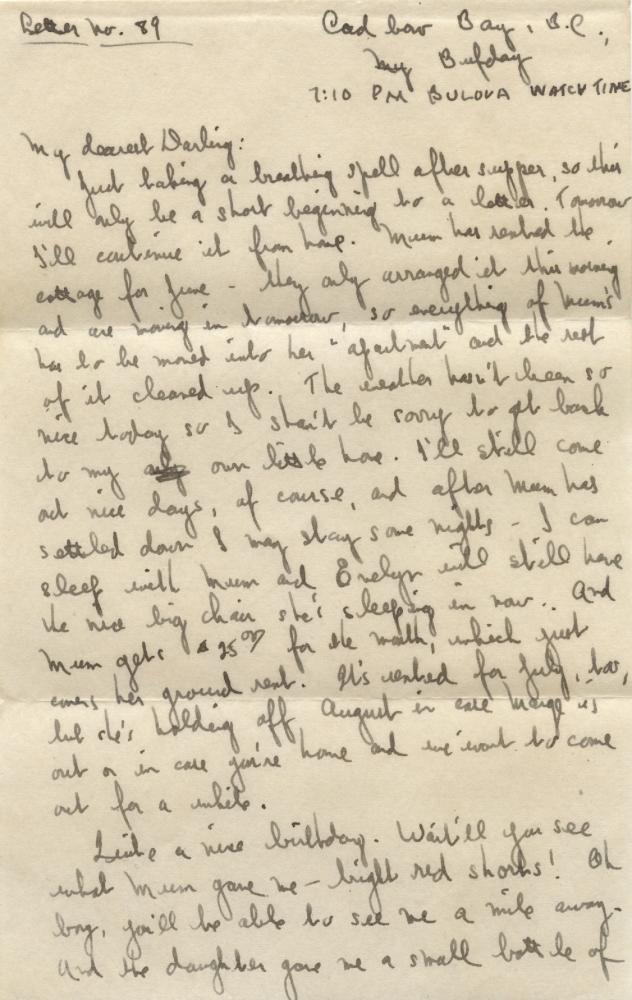 Letter No. 89
Cad boro Bay, B.C.,
My Birfday
7:10 PM BULOVA WATCH TIME
My dearest Darling:
Just taking a breathing spell after supper, so this
will only be a short beginning to a letter. Tomorrow
I'll continue it from home. Mum has rented the
cottage for June - they only arranged it this morning
and are moving in tomorrow, so everything of Mum's
has to be moved into her "apartment" and the rest
of it cleaned up. The weather hasn't been so
nice today so I shan't be sorry to get back
to my own little home. I'll still come
out nice days, of course, and after Mum has
settled down I may stay some nights - I can
sleep with Mum and Evelyn will still have
the nice big chair she's sleeping in now.. And
Mum gets $25.00 for the month, which just
covers her ground rent. It's rented for July, too,
but she's holding off August in case Marge is
out or in case you're home and we want to come
out for a while.
Quite a nice birthday. Wait'll you see
what Mum gave me - bright red shorts! Oh
boy, you'll be able to see me a mile away.
And the daughter gave me a small bottle of